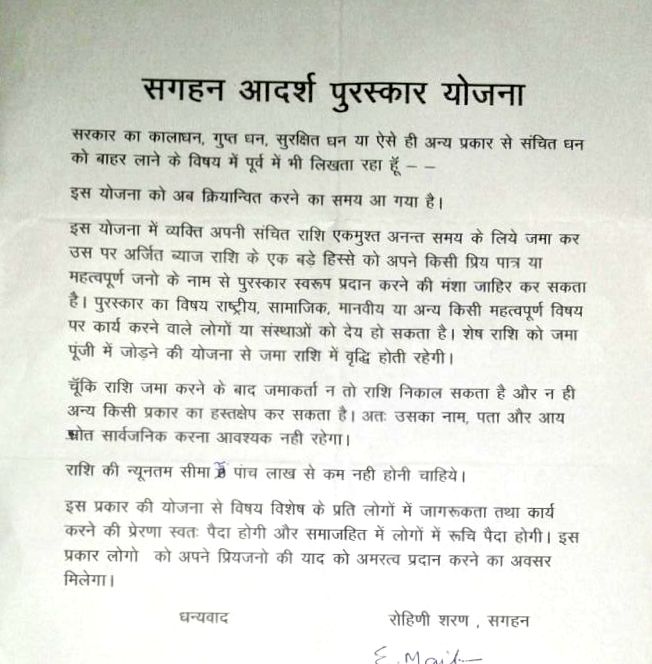 सगहन आदर्श पुरस्कार योजना
सरकार का कालाधन, गुप्त धन, सुरक्षित धन या ऐसे ही अन्य प्रकार से संचित धन
को बाहर लाने के विषय में पूर्व में भी लिखता रहा हूॅ – –
इस योजना को अब क्रियान्वित करने का समय आ गया है।
इस योजना में व्यक्ति अपनी संचित राशि एकमुश्त अनन्त समय के लिये जमा कर
उस पर अर्जित ब्याज राशि के एक बड़े हिस्से को अपने किसी प्रिय पात्र या
महत्वपूर्ण जनो के नाम से पुरस्कार स्वरूप प्रदान करने की मंशा जाहिर कर सकता
है। पुरस्कार का विषय राष्ट्रीय, सामाजिक, मानवीय या अन्य किसी महत्वपूर्ण विषय
पर कार्य करने वाले लोगों या संस्थाओं को देय हो सकता है। शेष राशि को जमा
पूंजी में जोड़ने की योजना से जमा राशि में वृद्धि होती रहेगी।
चूॅकि राशि जमा करने के बाद जमाकर्ता न तो राशि निकाल सकता है और न ही
अन्य किसी प्रकार का हस्तक्षेप कर सकता है। अतः उसका नाम, पता और आय
स्रोत सार्वजनिक करना आवश्यक नही रहेगा।
राशि की न्यूनतम सीमा पांच लाख से कम नही होनी चाहिये।
इस प्रकार की योजना से विषय विशेष के प्रति लोगों में जागरूकता तथा कार्य
करने की प्रेरणा स्वतः पैदा होगी और समाजहित में लोगों में रूचि पैदा होगी। इस
प्रकार लोगो को अपने प्रियजनो की याद को अमरत्व प्रदान करने का अवसर
मिलेगा।
धन्यवाद रोहिणी शरण , सगहन